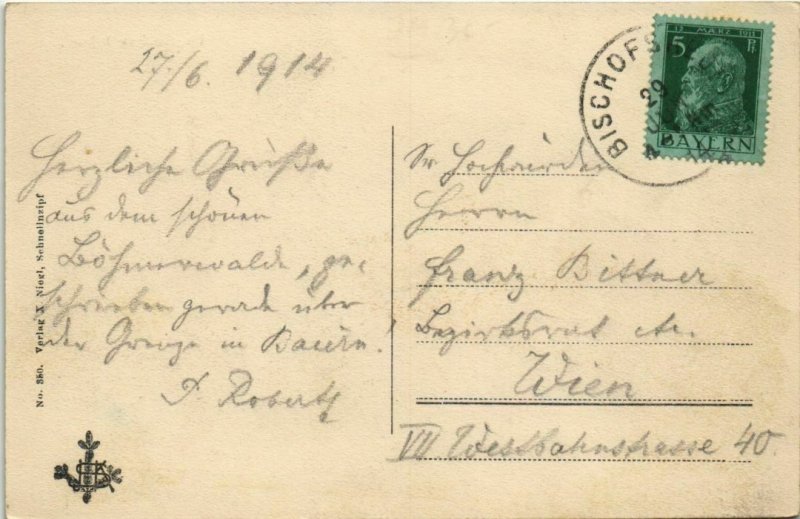 27/6. 1914
Herzliche Grüße
aus dem schönen
Böhmerwalde, ge-
schrieben gerade über
der Grenze in Baiern!
P. Robert
No. 350. Verlag X. Niegl, Schnellnzipf
BISCHOFS
29
13 MÄRZ 1911
5 Pf
BAYERN
Sr. Hochwürden
Herrn
Franz Bittner
Bezirksrat etc.
Wien
VII Westbahnstrasse 40.